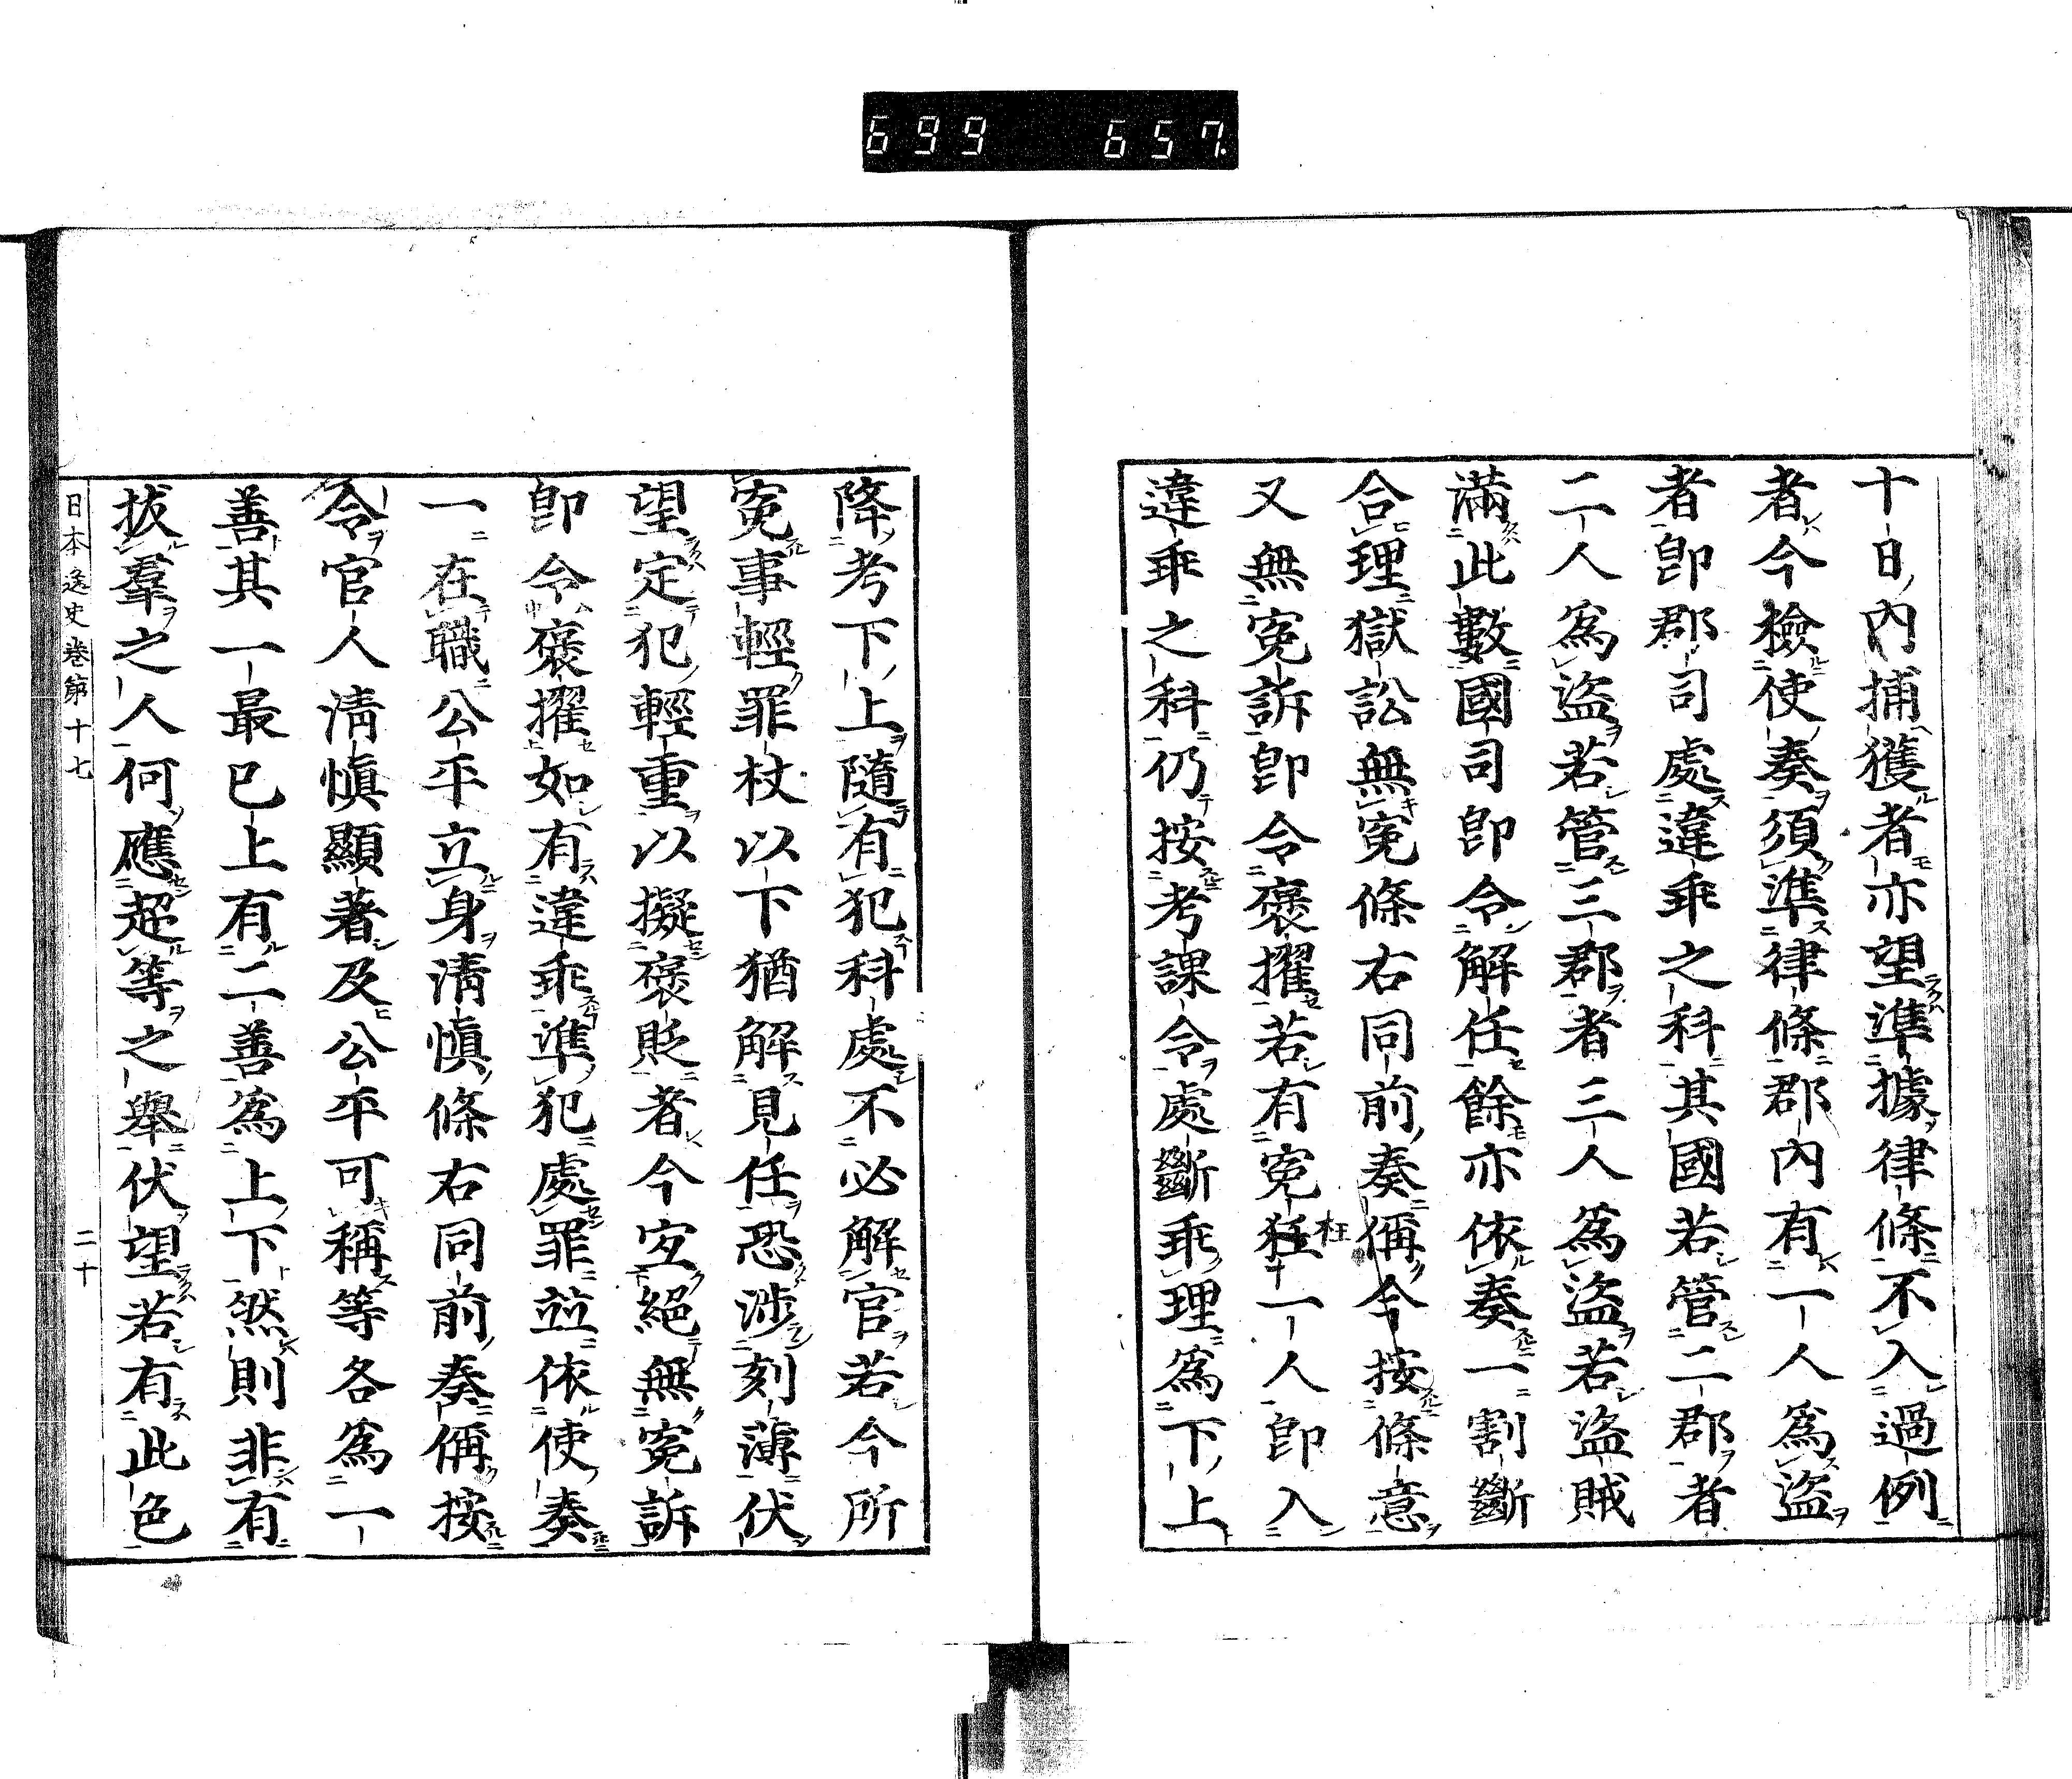 699 657.
十日內捕獲者亦望準據律條不入過例
者今檢使奏須準律條郡內有一人爲盜
者卽郡司處違乖之科其國若管二郡者
二人爲盜若管三郡者三人爲盜若盜賊
滿此數國司卽令解任餘亦依奏一割斷
合理獄訟無寃條右同前奏偁今按條意
又無寃訴卽令褒擢若有寃狂一人卽入
枉
違乖之科仍按考課令處斷乖理爲下上
降考下上隨有犯科處不必解官若今所
寃事輕罪杖以下猶解見任恐涉刻薄伏
望定犯輕重以擬褒貶者今寃絕無寃訴
卽令褒擢如有違乖準犯處罪並依使奏
一在職公平立身淸愼條右同前奏偁按
令官人淸愼顯著及公平可稱等各爲一
善其一最已上有二善爲上下然則非有
拔羣之人何應超等之舉伏望若有此色
日本逸史卷第十七 二十